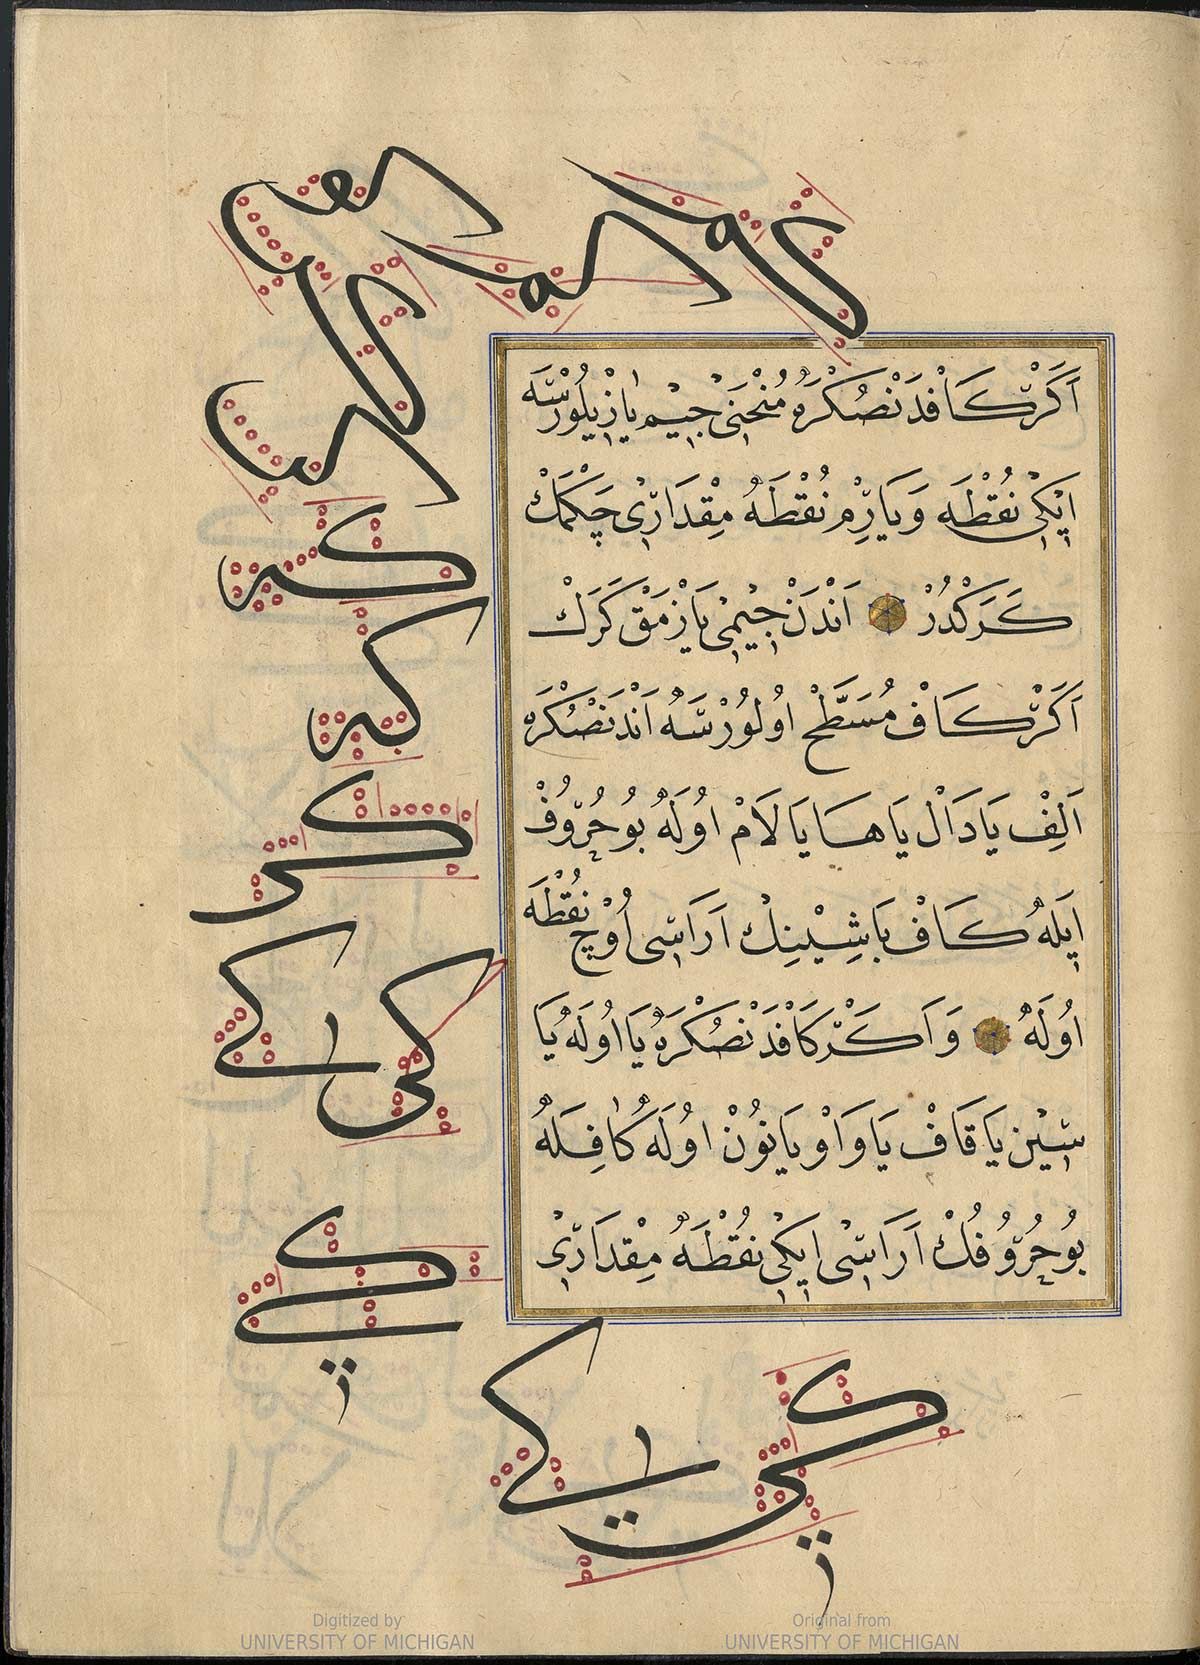 اَكَرْ كَافْدَنْصُكْرَهْ مُنْحَنِى جِيْم يَازِيلُورْسَه
اِيكِى نُقْطَه وَيَارِمْ نُقْطَهْ مِقْدَارِى چَكْمَكْ
كَرَكْدُرْ اَنْدَنْ جِيْمِى يَازْمَقْ كَرَكْ
اَكَرْ كَافْ مُسَطَّحْ اُولُورْسَهْ اَنْدَنْصُكْرَه
اَلِفْ يَا دَالْ يَا هَا يَا لَامْ اُولَهْ بُوحُرُوفْ
اِيلَهْ كَافْ بَاشِيْنِكْ اَرَاسِى اُوْچْ نُقْطَه
اُولَهْ وَاَكَرْ كَافْدَنْصُكْرَهْ يَا اُولَهْ يَا
سِيْن يَا قَافْ يَا وَاوْ يَا نُونْ اُولَهْ كَافِلَهْ
بُوحُرُوفُكْ اَرَاسِى اِيكِى نُقْطَهْ مِقْدَارِى
كبر
كبر
كى
Digitized by
UNIVERSITY OF MICHIGAN
Original from
UNIVERSITY OF MICHIGAN